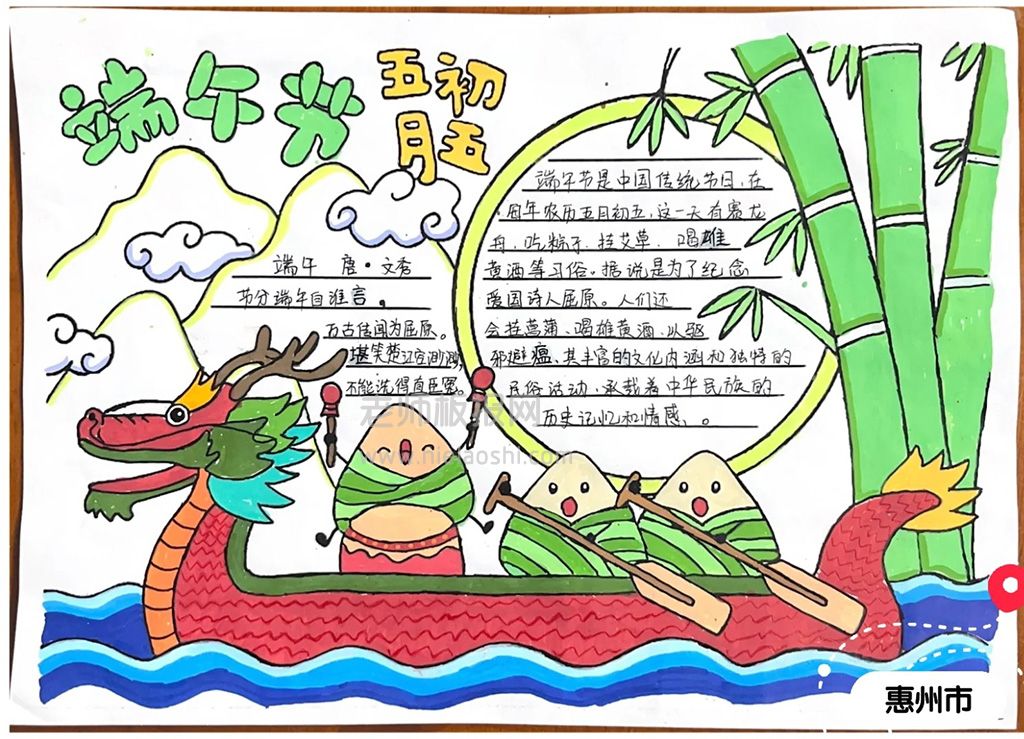 端午节
五月
初五
端午 唐·文秀
节分端午自谁言。
万古传闻为屈原。
堪笑楚江空渺渺,
不能洗得直臣冤。
端午节是中国传统节日,在
每年农历五月初五,这一天有赛龙
舟、吃粽子、挂艾草、喝雄
黄酒等习俗。据说是为了纪念
爱国诗人屈原。人们还
会挂菖蒲、喝雄黄酒,以驱
邪避瘟,其丰富的文化内涵和独特的
民俗活动,承载着中华民族的
历史记忆和情感、。
老师板报网
www.nielaoshi.com
惠州市